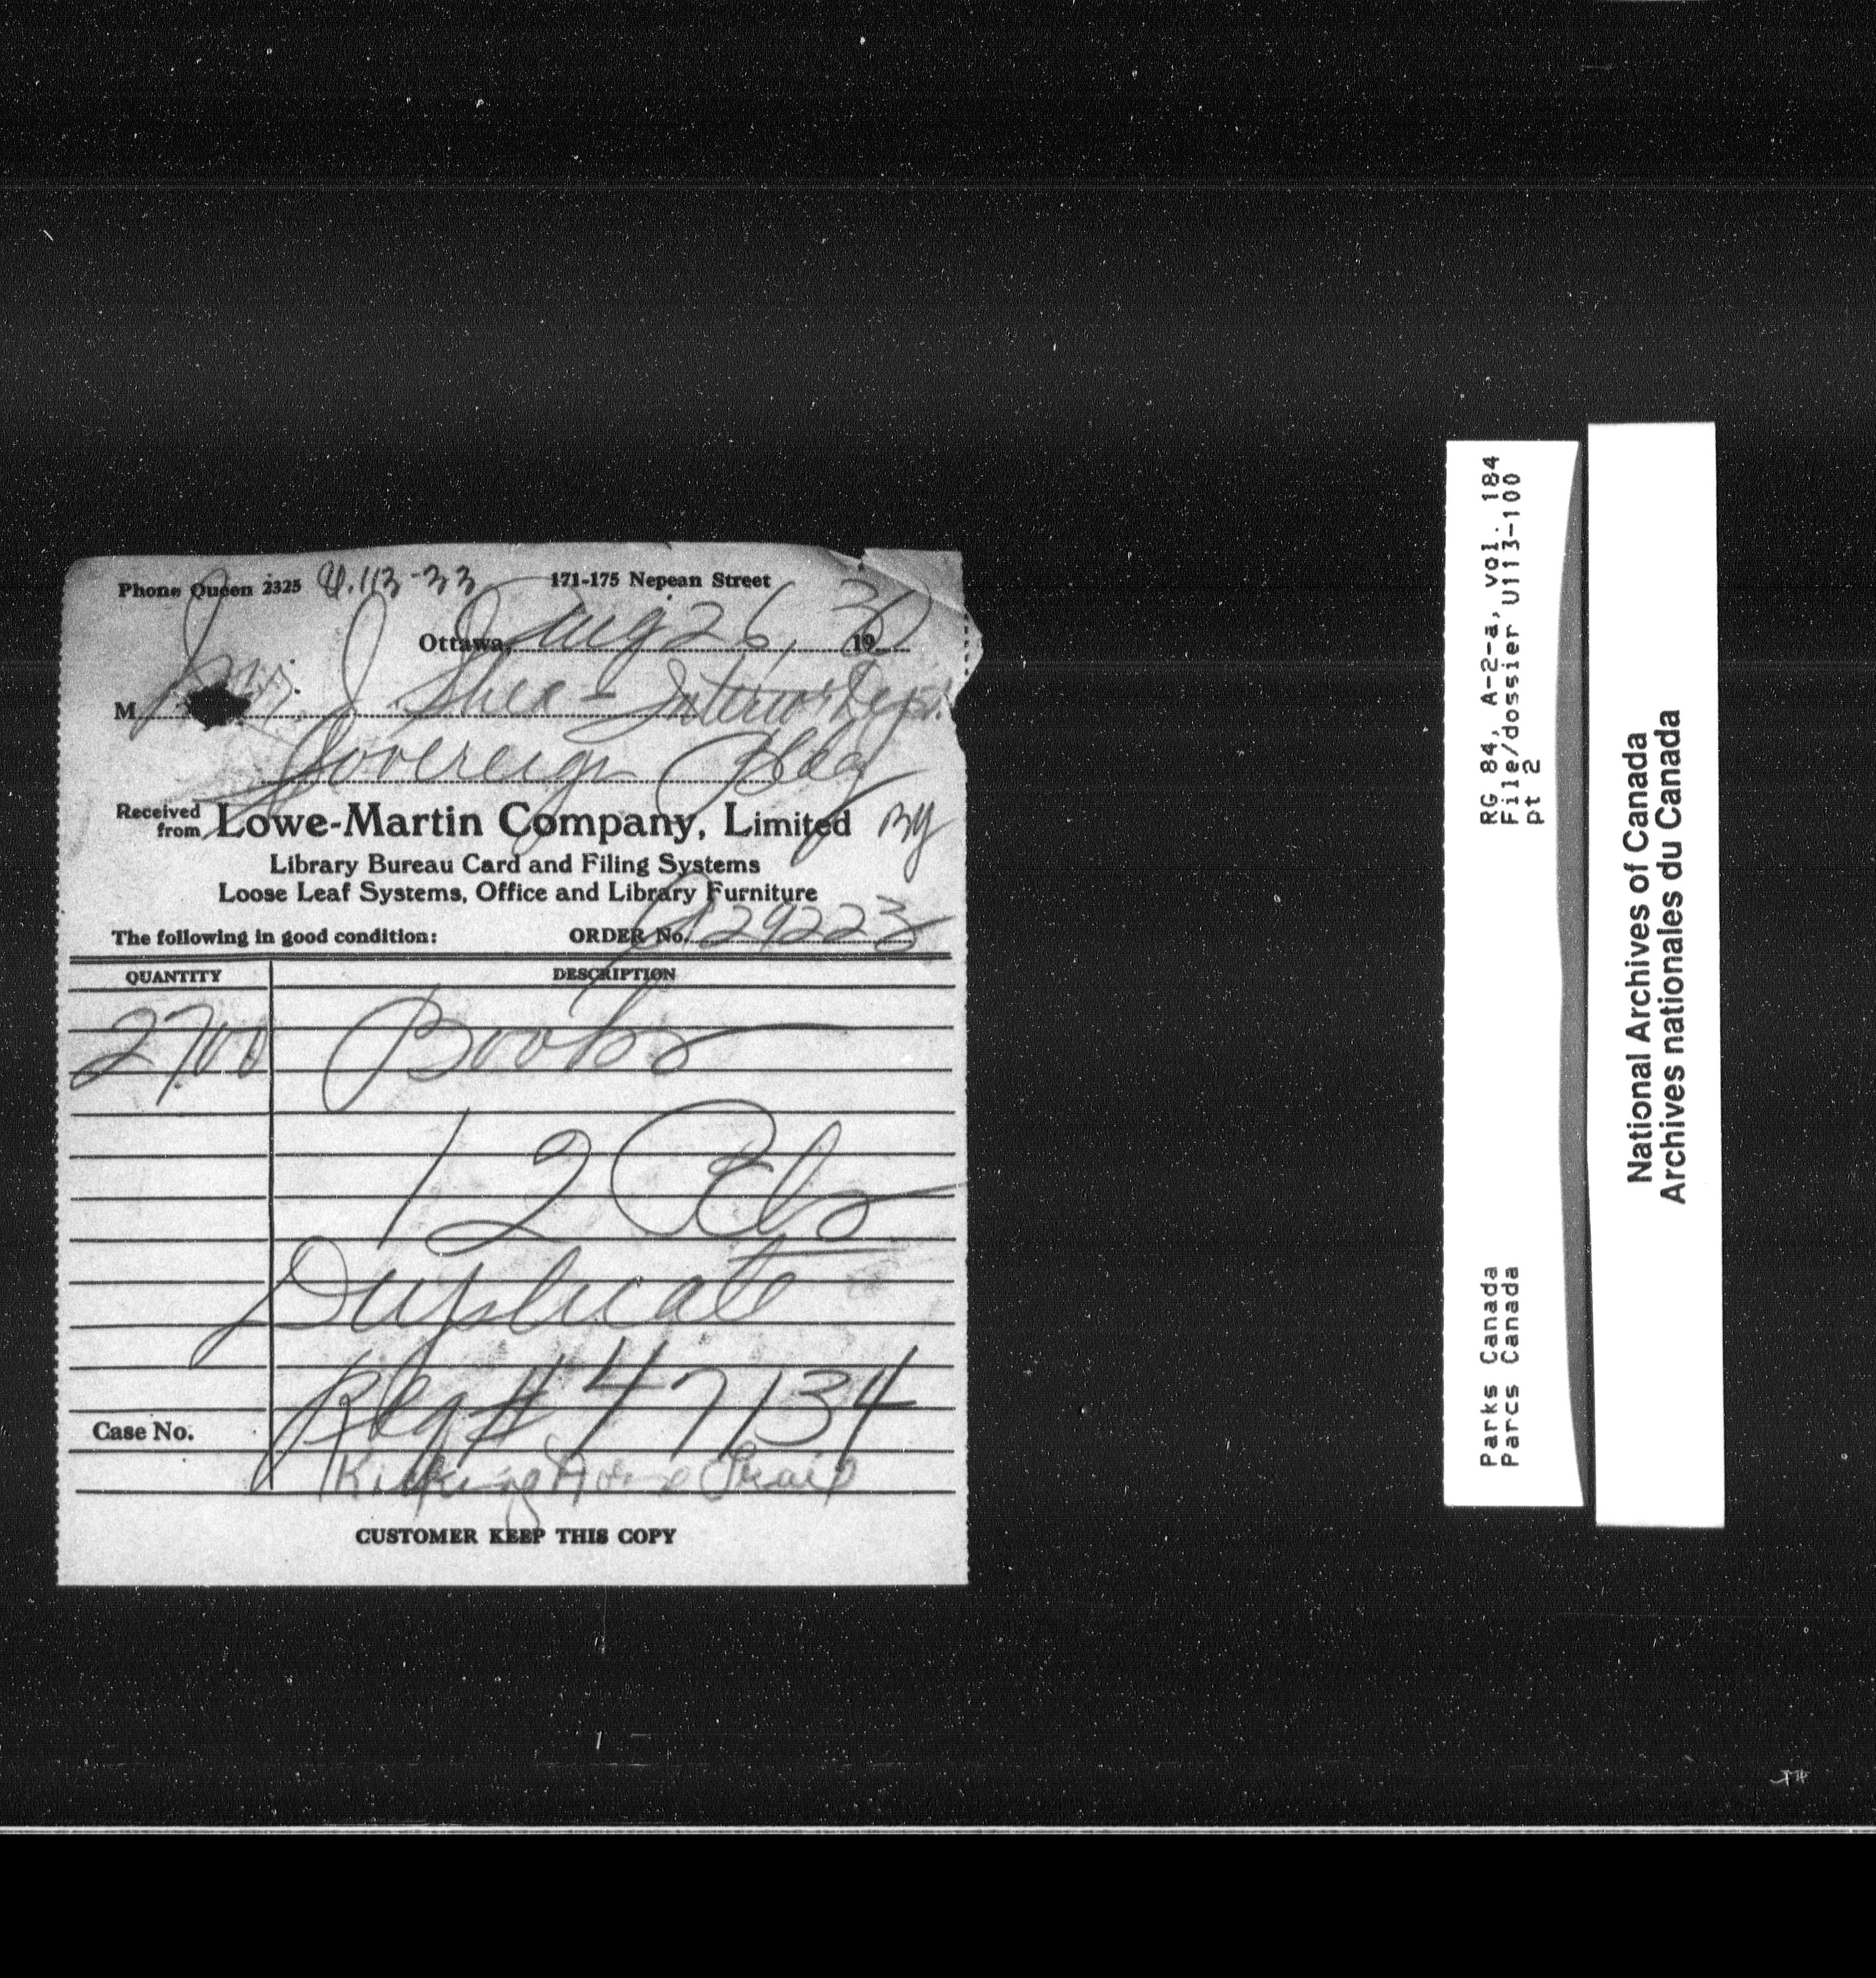 Phone Queen 2325 U.113-33 171-175 Nepean Street
Ottawa, Aug 26, 19
M J Shea - Interior Dept.
Sovereign Bldg
Received from Lowe-Martin Company, Limited
Library Bureau Card and Filing Systems
Loose Leaf Systems, Office and Library Furniture
The following in good condition: ORDER No. 29223
QUANTITY DESCRIPTION
2700 Books
12
Duplicate
# 47134
Case No.
Kicking Horse Trail
CUSTOMER KEEP THIS COPY
RG 84, A-2-a, vol. 184
File/dossier U113-100
pt 2
Parks Canada
Parcs Canada
National Archives of Canada
Archives nationales du Canada